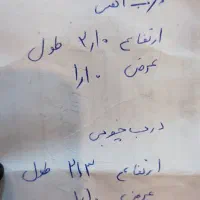 درب آهنی
ارتفاع ۲/۱۰ طول
عرض ۱/۱۰
درب چوبی
ارتفاع ۲/۱۳ طول
عرض ۱/۱۰